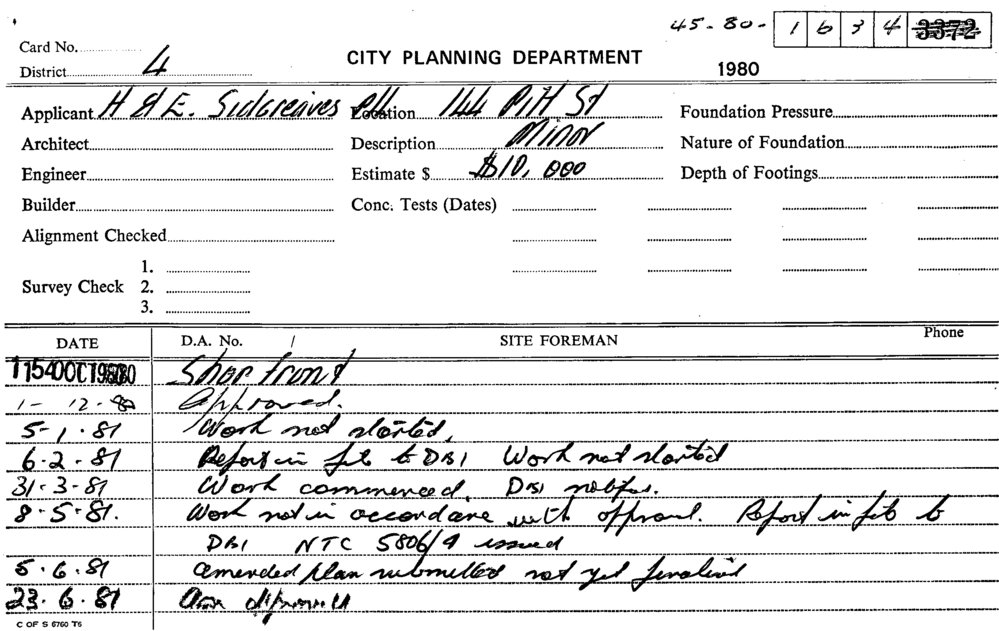 45-80- 1 6 3 4 3372
Card No.
District 4
CITY PLANNING DEPARTMENT
1980
Applicant H & E. Sidgreaves P/L Location 144 Pitt St Foundation Pressure
Architect Description Minor Nature of Foundation
Engineer Estimate $ $10,000 Depth of Footings
Builder Conc. Tests (Dates)
Alignment Checked
1.
Survey Check 2.
3.
DATE D.A. No. / SITE FOREMAN Phone
Shop front
1-12-80 Approved.
5-1-81 Work not started.
6-2-81 Report in file to DBI Work not started
31-3-81 Work commenced. DBI
8-5-81. Work not in accordance with approval. Report in file to
DBI NTC 5806/9 issued
5.6.81 amended plan submitted not yet finalised
23.6.81
C OF S 6760 T6